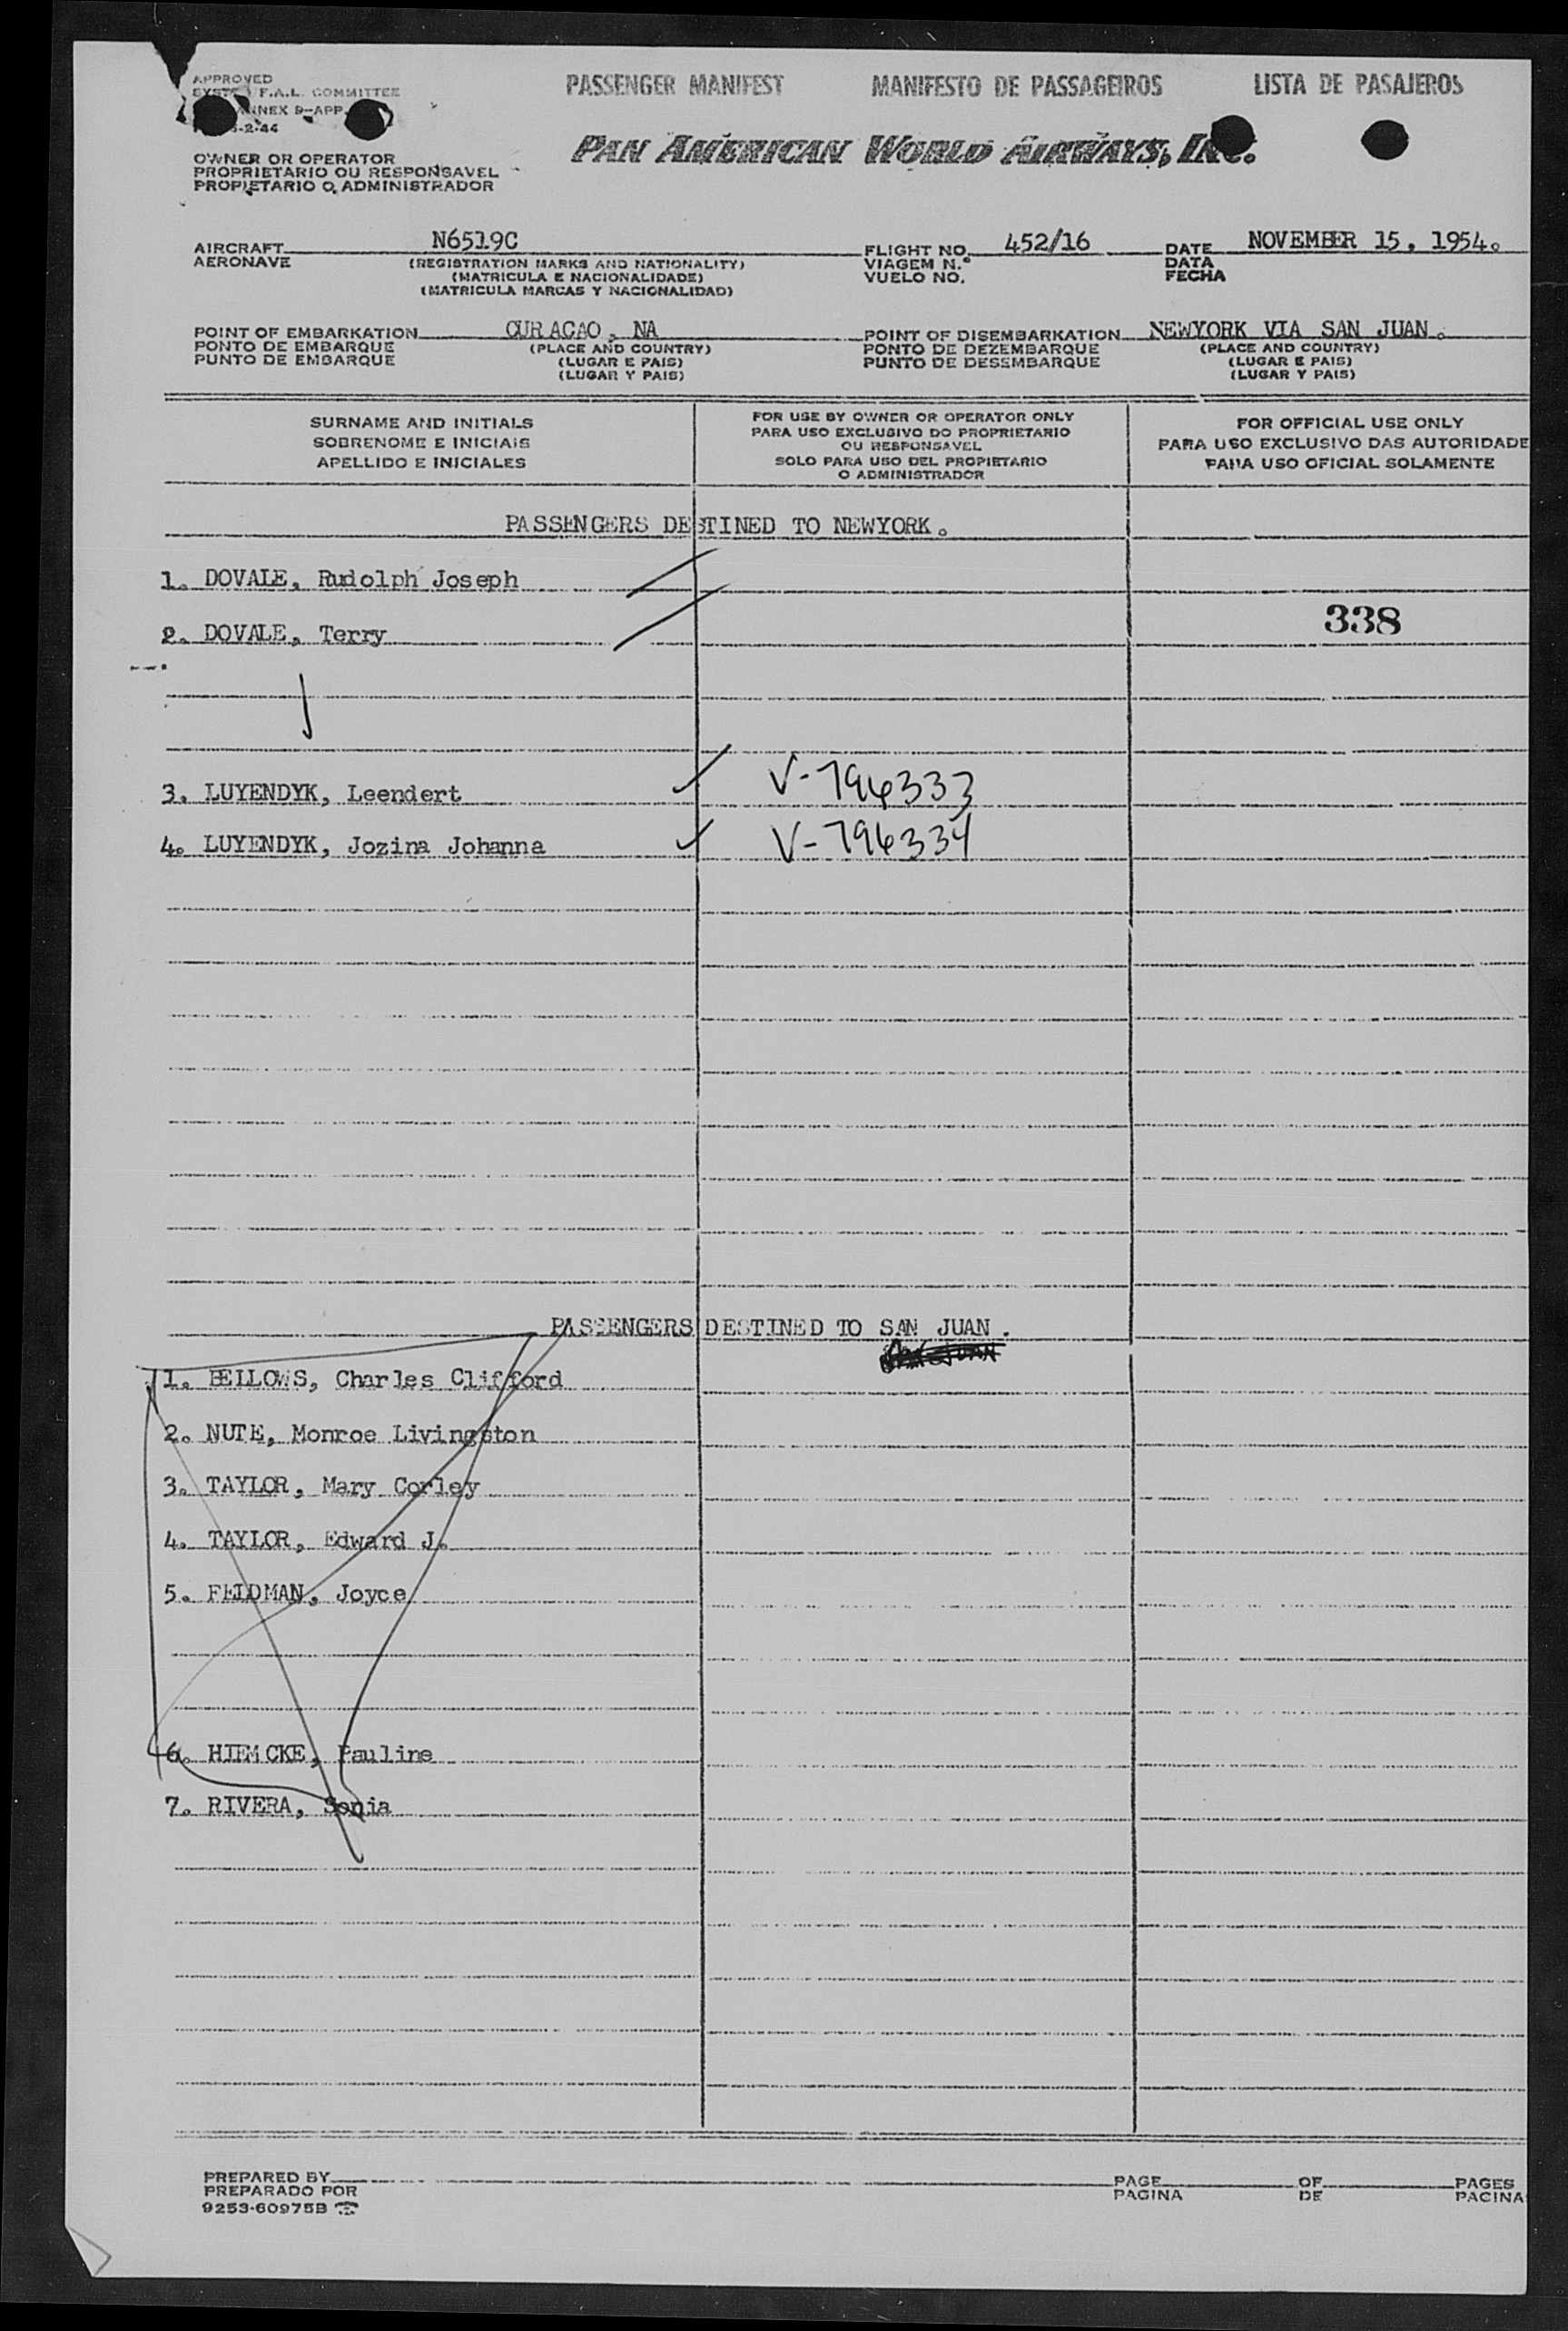 APPROVED
F.A.L. COMMITTEE
NNEX 9-APP.
-2-44
PASSENGER MANIFEST MANIFESTO DE PASSAGEIROS LISTA DE PASAJEROS
PAN AMERICAN WORLD AIRWAYS, INC.
OWNER OR OPERATOR
PROPRIETARIO OU RESPONSAVEL
PROPIETARIO O ADMINISTRADOR
AIRCRAFT N6519C FLIGHT NO. 452/16 DATE NOVEMBER 15, 1954.
AERONAVE (REGISTRATION MARKS AND NATIONALITY) VIAGEM N.º DATA
(MATRICULA E NACIONALIDADE) VUELO NO. FECHA
(MATRICULA MARCAS Y NACIONALIDAD)
POINT OF EMBARKATION CURACAO, NA POINT OF DISEMBARKATION NEWYORK VIA SAN JUAN.
PONTO DE EMBARQUE (PLACE AND COUNTRY) PONTO DE DEZEMBARQUE (PLACE AND COUNTRY)
PUNTO DE EMBARQUE (LUGAR E PAIS) PUNTO DE DESEMBARQUE (LUGAR E PAIS)
(LUGAR Y PAIS) (LUGAR Y PAIS)
SURNAME AND INITIALS
SOBRENOME E INICIAIS
APELLIDO E INICIALES
FOR USE BY OWNER OR OPERATOR ONLY
PARA USO EXCLUSIVO DO PROPRIETARIO
OU RESPONSAVEL
SOLO PARA USO DEL PROPIETARIO
O ADMINISTRADOR
FOR OFFICIAL USE ONLY
PARA USO EXCLUSIVO DAS AUTORIDADE
PARA USO OFICIAL SOLAMENTE
PASSENGERS DESTINED TO NEWYORK.
1. DOVALE, Rudolph Joseph
338
2. DOVALE, Terry
3. LUYENDYK, Leendert V-794333
4. LUYENDYK, Jozina Johanna V-794334
PASSENGERS DESTINED TO SAN JUAN.
1. BELLOWS, Charles Clifford
2. NUTE, Monroe Livingston
3. TAYLOR, Mary Corley
4. TAYLOR, Edward J.
5. FELDMAN, Joyce
6. HIEMCKE, Pauline
7. RIVERA, Sonia
PREPARED BY PAGE OF PAGES
PREPARADO POR PAGINA DE PAGINA
9253-60975B